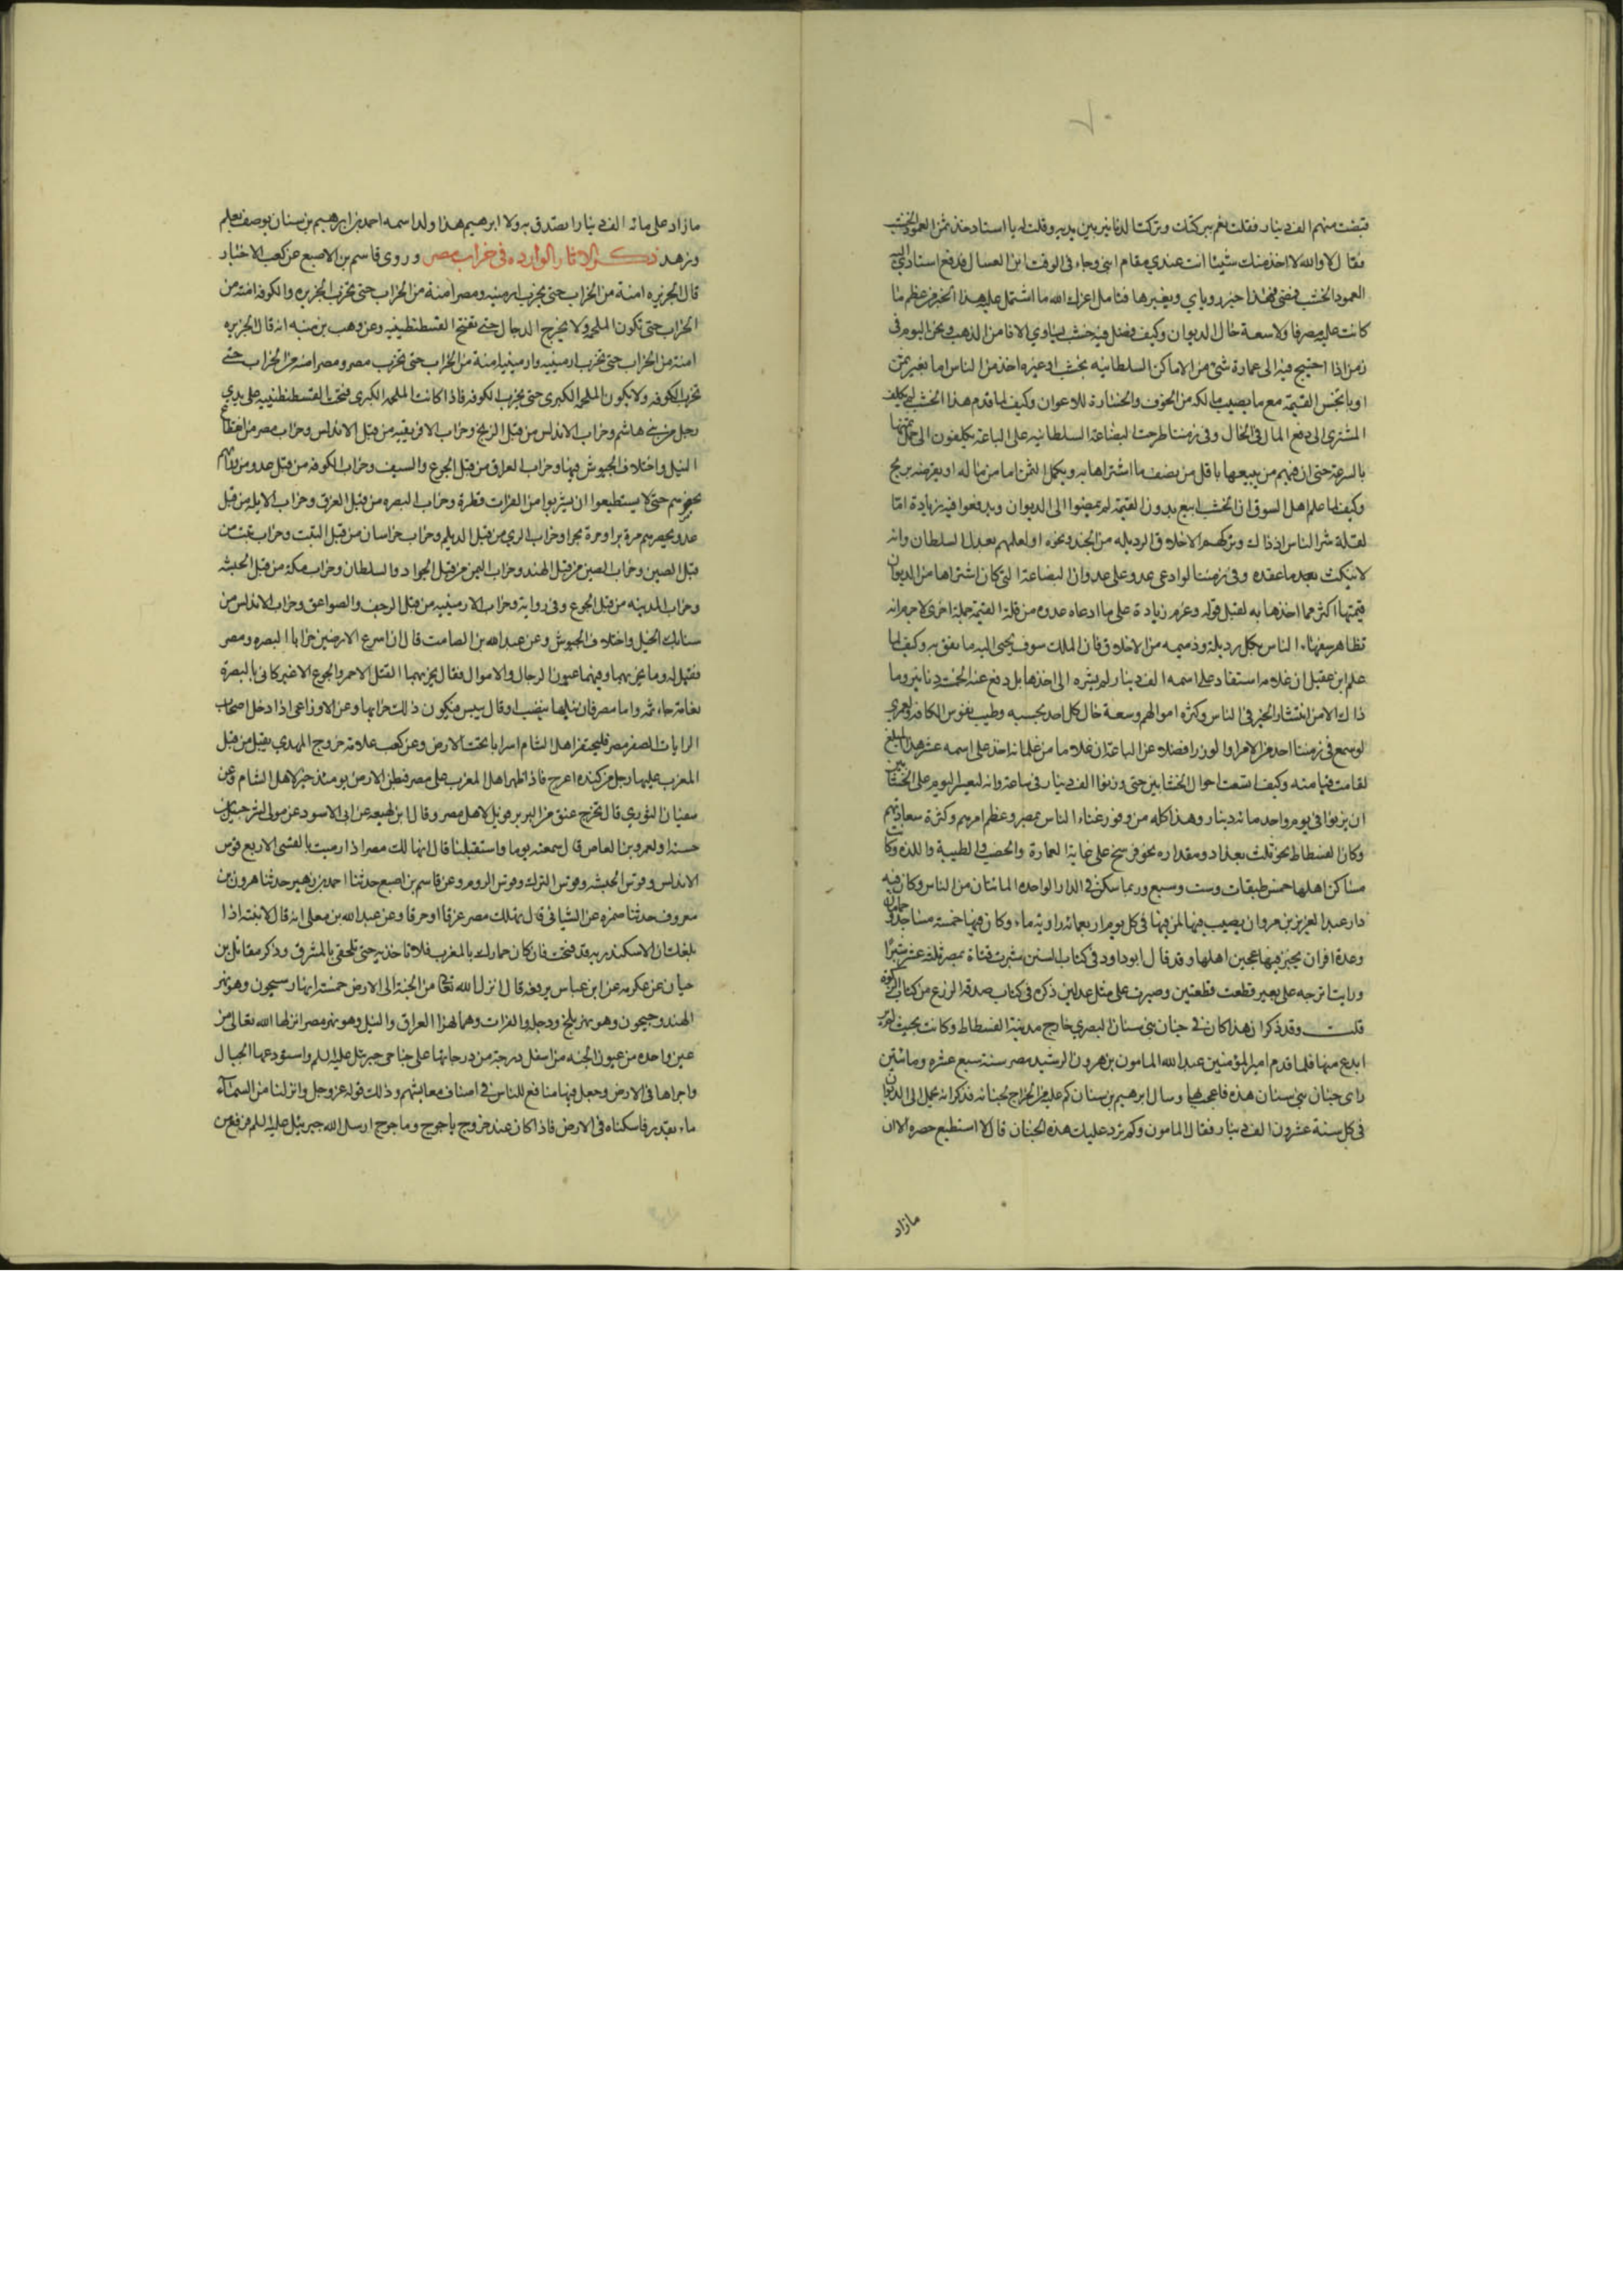 ٧٠
قبضت منهم الف دينار فقلت نعم ببركتك وتركت الدنانير بين يديه وقلت له يا استاد خذ ثمن العمود الخشب
فقال لا والله لا اخذ منك شيئا انت عندي مقام ابني وجاء في الوقت ابن العسال فدفع استادي اليه
العمود الخشب فمضى فهذا خبر روياي وتعبيرها فتامل اعزك الله ما اشتمل عليه هذا الخبر من عظم ما
كانت عليه مصر فاولا سعة حال الديوان وكيف فضل فيه خشب يساوي الافا من الذهب ونحن اليوم في
زمن اذا احتيج فيه الى عمارة شئ من الاماكن السلطانيه بخشب او غيره اخذ من الناس اما بغير ثمن
او باخس القيمة مع ما يصيب مالكه من الخوف والخسارة للاعوان وكيف لما قدم هذا الخشب لم يكلف
المشتري الى دفع المال في الحال وفي زمننا طرحت البضاعة السلطانيه على الباعة يكلفون الى حمل ثمنها
بالسرعة حتى ان فيهم من يبيعها باقل من نصف ما اشتراها به ويكمل الثمن اما من ماله او يقترضه بربح
وكيف لما علم اهل السوق ان الخشب ابيع بدون القيمة لم يمضوا الى الديوان ويدفعوا فيه زيادة اما
لقلة شر الناس اذ ذاك وتركهم الاخلاق الرديله من الحسد ونحوه او لعلمهم بعدل السلطان وانه
لا ينكث بعد ما عقده وفي زمننا لو ادعى عدو على عدوه ان البضاعة التي كان اشتراها من الديوان
قيمتها اكثر مما اخذها به لقبل قوله وغرم زيادة على ما ادعاه عدوه من قلة القيمة جملة اخرى لا جرم انه
تظاهر سفهاء الناس بكل رديلة وذميمه من الاخلاق فان الملك سوق يجبى اليه ما نفق به وكيف لما
علم ابن عقيل ان غلامه استفاد على اسمه الف دينار لم يشره الى اخذها بل دفع عنه الخمت دنانير وما
ذاك الا من انتشار الخير في الناس وكثرة اموالهم وسعة حال كل احد بحسبه وطيب نفوس الكافة ولعمري
لو سمع في زمننا احد من الامرا والوزرا فضلا عن الباعة ان غلاما من غلمانه اخذ على اسمه عشر هذا المبلغ
لقامت قيامته وكيف اتسعت احوال الخشابين حتى وزنوا الف دينار في ساعة وانه ليعسر اليوم على الخشابين
ان يزنوا في يوم واحد مائة دينار وهذا كله من وفور غناء الناس بمصر وعظم امرهم وكثرة سعاداتهم
وكان الفسطاط نحو ثلث بغداد ومقداره نحو فرسخ على غاية العمارة والخصب والطيبة واللذه وكانت
مساكن اهلها خمس طبقات وست وسبع وربما سكن في الدار الواحده المائتان من الناس وكان فيه
دار عبد العزيز بن مروان يصيب فيها لمن فيها في كل يوم اربعمائه راوية ماء وكان فيها خمسة مساجد وحمامان
وعدة افران يخبز فيها عجين اهلها وقد قال ابو داود في كتاب السنن شبرت قثاة بمصر ثلثة عشر شبرا
ورايت اترجه على بعير قطعت قطعتين وصيرت على مثل عدلين ذكره في كتاب صدقة الزرع من كتاب الزكوة
قلت وقد ذكر ان هذا كان في جنان بني سنان البصري خارج مدينة الفسطاط وكانت بحيث لم ير
ابدع منها فلما قدم امير المؤمنين عبد الله المامون بن هرون الرشيد مصر سنة سبع عشره ومائتين
راى جنان بني سنان هذه فاعجب بها وسال ابرهيم بن سنان كم عليه من الخراج لجنانه فذكر انه يحمل الى الديوان
في كل سنة عشرون الف دينار فقال المامون وكم ترد عليك هذه الجنان قال لا استطيع حصره الا ان
مازاد
مازاد على مائة الف دينار اتصدق به ولابرهيم هذا ولد اسمه احمد بن ابرهيم بن سنان يوصف بعلم
وزهد ذكر الاثار الوارده في خراب مصر وروى قاسم بن الاصبغ عن كعب الاحبار
قال الجزيره امنة من الخراب حتى تخرب ارمنيه ومصر امنة من الخراب حتى تخرب الجزيره والكوفه امنة من
الخراب حتى تكون الملحمه ولا يخرج الدجال حتى تفتح القسطنطينيه وعن وهب بن منبه انه قال الجزيره
امنة من الخراب حتى تخرب ارمينيه وارمينيه امنة من الخراب حتى تخرب مصر ومصر امنه من الخراب حتى
تخرب الكوفه ولا يكون الملحمه الكبرى حتى تخرب الكوفه فاذا كانت الملحمه الكبرى فتحت القسطنطينيه على يدي
رجل من بني هاشم وخراب الاندلس من قبل الزنج وخراب الافريقيه من قبل الاندلس وخراب مصر من انقطاع
النيل واختلاف الجيوش فيها وخراب العراق من قبل الجوع والسيف وخراب الكوفه من قبل عدو من ورائهم
يحصرهم حتى لا يستطيعوا ان يشربوا من الفرات قطرة وخراب البصره من قبل الغرق وخراب الابله من قبل
عدو يحصرهم مرة برا ومرة بحرا وخراب الري من قبل الديلم وخراب خراسان من قبل التبت وخراب تبت من
قبل الصين وخراب الصين من قبل الهند وخراب اليمن من قبل الجراد والسلطان وخراب مكة من قبل الحبشه
وخراب المدينه من قبل الجوع وفي رواية وخراب الارمينيه من قبل الرجف والصواعق وخراب الاندلس من
سنابك الخيل واختلاف الجيوش وعن عبد الله بن الصامت قال ان اسرع الارضين خرابا البصره ومصر
فقيل له وما يخربهما وفيهما عيون الرجال والاموال فقال يخربهما القتل الاحمر والجوع الاغبر كاني بالبصرة
نعامة جاثمة واما مصر فان نيلها ينضب او قال ييبس فيكون ذلك خرابها وعن الاوزاعي اذا دخل اصحاب
الرايات الصفر مصر فليحتفر اهل الشام اسرابا تحت الارض وعن كعب علامة خروج المهدي يقبل من قبل
المغرب عليها رجل من كنده اعرج فاذا ظهر اهل المغرب على مصر فبطن الارض يومئذ خير لاهل الشام وعن
سفيان الثوري قال تخرج عنق من البربر فويل لاهل مصر وقال ابن لهيعه عن ابي الاسود عن مولى لشرحبيل بن
حسنه او لعمرو بن العاص قال سمعته يوما واستقبلنا قال ايها لك مصر اذا رميت بالقسي الاربع قوس
الاندلس وقوس الحبشه وقوس الترك وقوس الروم وعن قاسم بن اصبع حدثنا احمد بن زهير حدثنا هرون بن
معروف حدثنا ضمره عن الشيباني قال تهلك مصر غرقا او حرقا وعن عبد الله بن معلى انه قال لابنته اذا
بلغك ان الاسكندريه قد فتحت فان كان خمارك بالمغرب فلا تاخذيه حتى تلحقي بالمشرق وذكر مقاتل بن
حيان عن عكرمه عن ابن عباس يرفعه قال انزل الله تعالى من الجنة الى الارض خمسة انهار سيحون وهو نهر
الهند وجيحون وهو نهر بلخ ودجله والفرات وهما نهرا العراق والنيل وهو نهر مصر انزلها الله تعالى من
عين واحده من عيون الجنه من اسفل درجة من درجاتها على جناحي جبرئل عليه السلام واستودعها الجبال
واجراها في الارض وجعل فيها منافع للناس في اصناف معايشهم وذلك قوله عز وجل وانزلنا من السماء
ماء بقدر فاسكناه في الارض فاذا كان عند خروج ياجوج وماجوج ارسل الله جبرئيل عليه السلام فرفع من